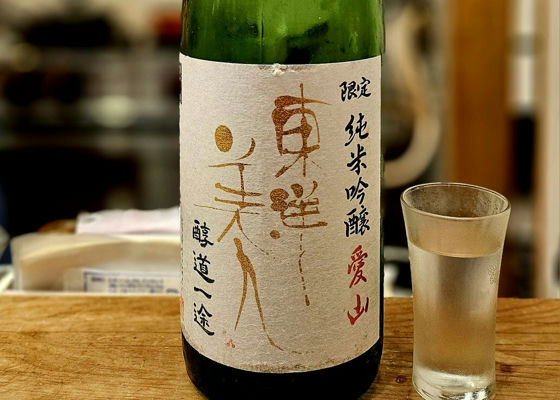 限定
純米吟醸 愛山
東洋
美人
醇道一途